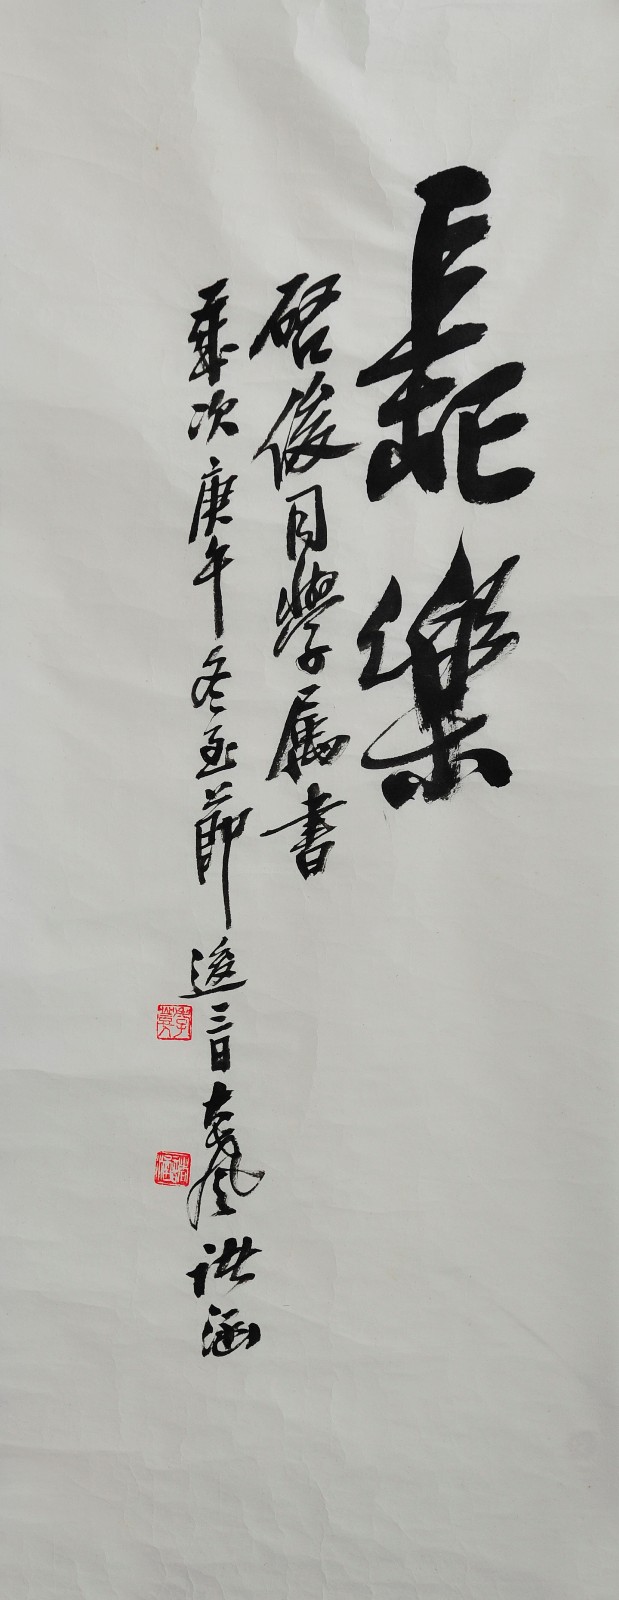 長樂
啓俊同學屬書
歲次庚午冬至節後三日 洪涵